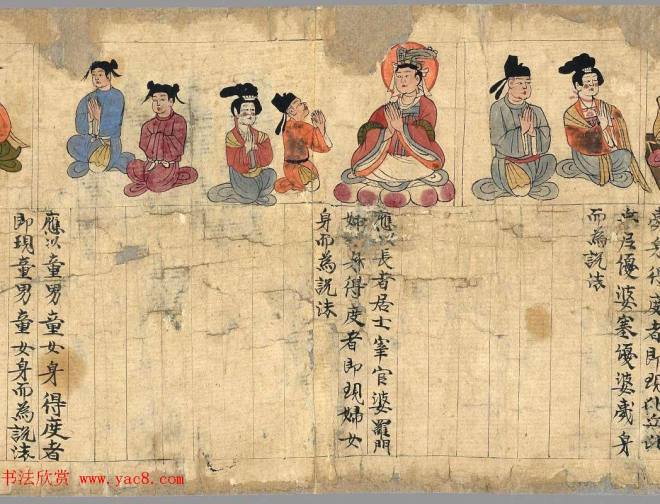 身得度者即現比丘比
尼優婆塞優婆夷身
而為說法
應以長者居士宰官婆羅門
婦女身得度者即現婦女
身而為說法
應以童男童女身得度者
即現童男童女身而為說法
书法欣赏 www.yac8.com